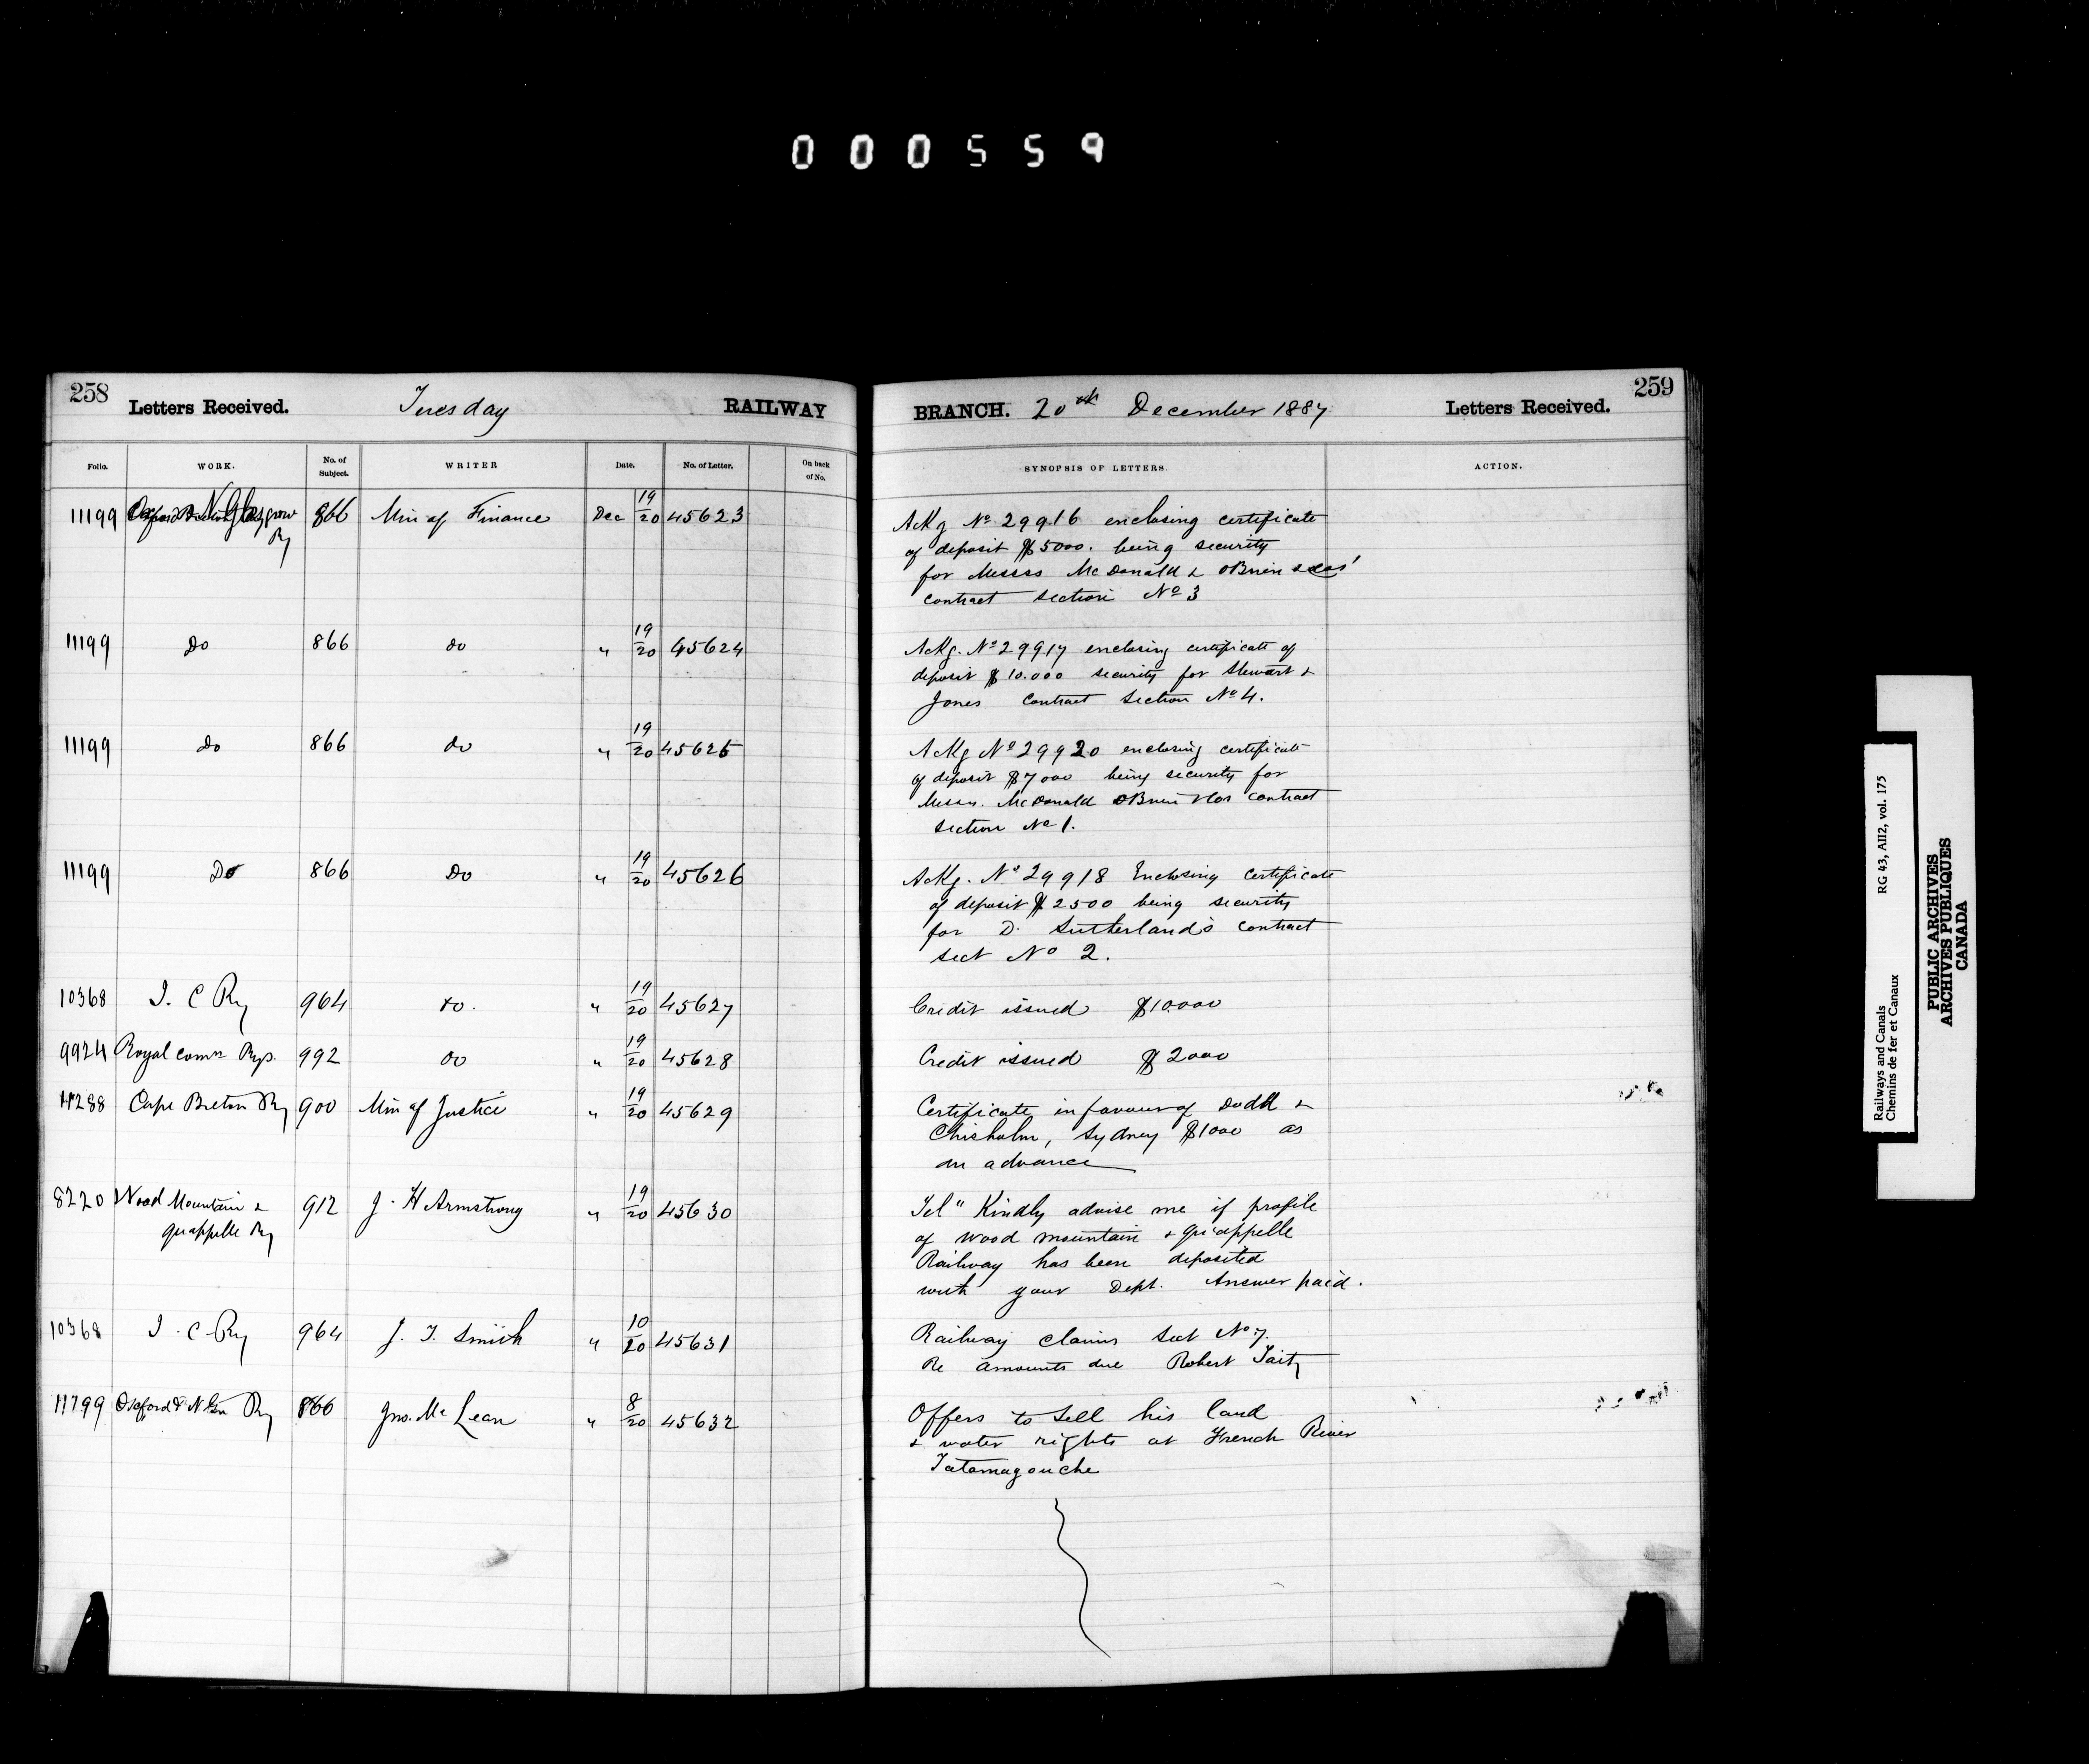 000559
258 Letters Received. Tuesday RAILWAY
Folio. WORK. No. of Subject. WRITER Date. No. of Letter. On back of No.
11199 N Glasgow Ry 866 Min of Finance Dec 19/20 45623
11199 Do 866 do " 19/20 45624
11199 do 866 do " 19/20 45625
11199 Do 866 Do " 19/20 45626
10368 I. C Ry 964 do. " 19/20 45627
9924 Royal Comn Rys. 992 do " 19/20 45628
4288 Cape Breton Ry 900 Min of Justice " 19/20 45629
8220 Wood Mountain &
Qu'appelle Ry 912 J. H Armstrong " 19/20 45630
10368 I. C Ry 964 J. T. Smith " 10/20 45631
11799 Oxford & N Gw Ry 866 Jno. Mc Lean " 8/20 45632
BRANCH. 20th December 1887 Letters Received. 259
SYNOPSIS OF LETTERS. ACTION.
Ackg No 29916 enclosing certificate
of deposit $5000. being security
for Messrs McDonald & OBrien
contract section No 3
Ackg. No 29917 enclosing certificate of
deposit $10.000 security for Stewart &
Jones contract section No 4.
Ackg No 29920 enclosing certificate
of deposit $7000 being security for
Messrs. McDonald OBrien &Cos contract
section No 1.
Ackg. No 29918 Enclosing certificate
of deposit $2500 being security
for D. Sutherland's contract
sect No 2.
Credit issued $10.000
Credit issued $2000
Certificate in favour of Dodd &
Chisholm, Sydney $1000 as
an advance
Tel " Kindly advise me if profile
of Wood mountain & Qu'appelle
Railway has been deposited
with your Dept. Answer paid.
Railway claims Sect No 7.
Re amounts due Robert Tait
Offers to sell his land
& water rights at French River
Tatamagouche
Railways and Canals RG 43, AII2, vol. 175
Chemins de fer et Canaux
PUBLIC ARCHIVES
ARCHIVES PUBLIQUES
CANADA